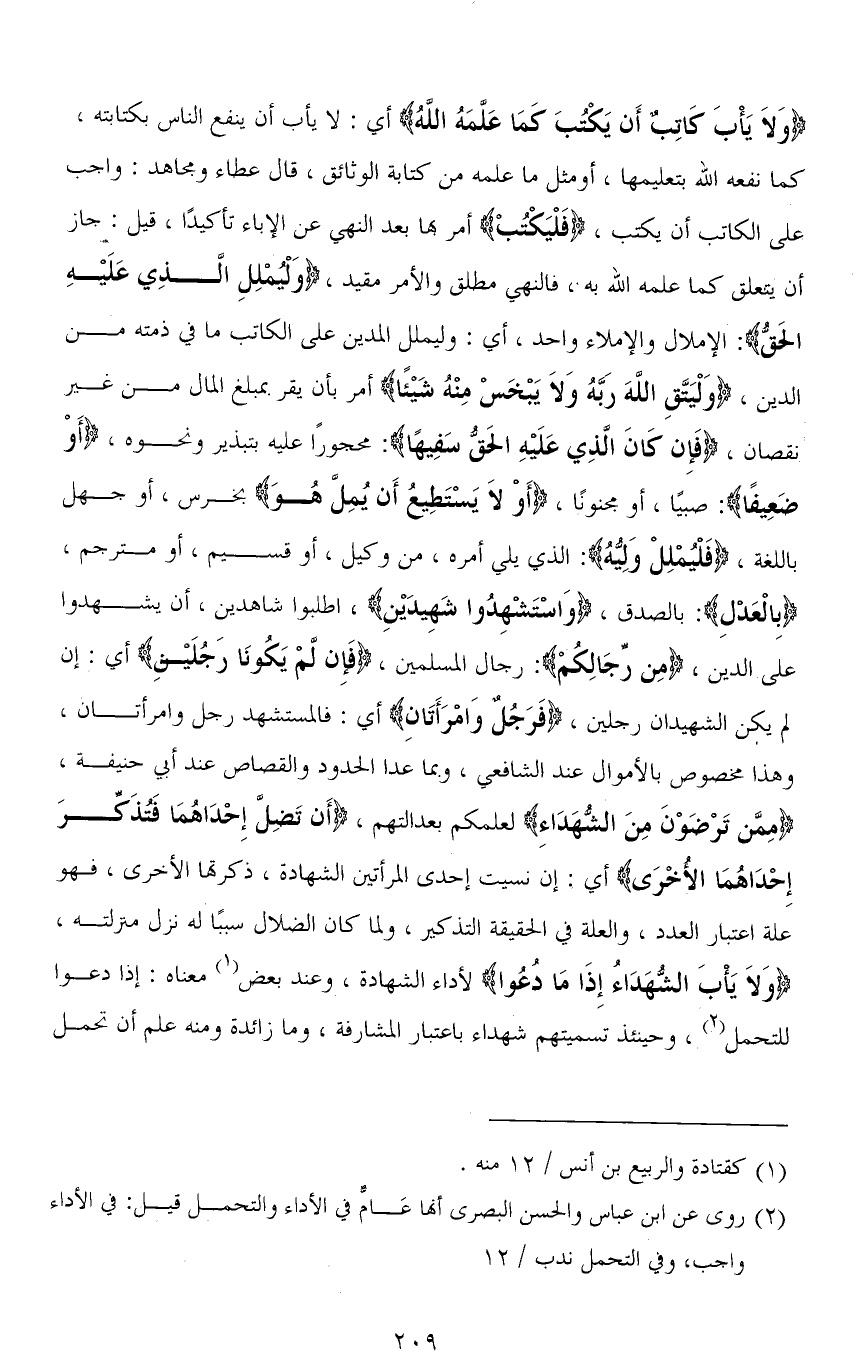 ﴿وَلاَ يَأْبَ كَاتِبٌ أَن يَكْتُبَ كَمَا عَلَّمَهُ اللَّهُ﴾ أي : لا يأب أن ينفع الناس بكتابته ،
كما نفعه الله بتعليمها ، أومثل ما علمه من كتابة الوثائق ، قال عطاء ومجاهد : واجب
على الكاتب أن يكتب ، ﴿فَلْيَكْتُبْ﴾ أمر بها بعد النهي عن الإباء تأكيدًا ، قيل : جاز
أن يتعلق كما علمه الله به ، فالنهي مطلق والأمر مقيد ، ﴿وَلْيُمْلِلِ الَّـــذِي عَلَيْـــهِ
الحَقُّ﴾: الإملال والإملاء واحد ، أي : وليملل المدين على الكاتب ما في ذمته مـــن
الدين ، ﴿وَلْيَتَّقِ اللَّهَ رَبَّهُ وَلاَ يَبْخَسْ مِنْهُ شَيْئًا﴾ أمر بأن يقر بمبلغ المال مـــن غـــير
نقصان ، ﴿فَإِن كَانَ الَّذِي عَلَيْهِ الحَقُّ سَفِيهًا﴾: محجورًا عليه بتبذير ونحـــوه ، ﴿أَوْ
ضَعِيفًا﴾: صبيًا ، أو مجنونًا ، ﴿أَوْ لاَ يَسْتَطِيعُ أَن يُمِلَّ هُـــوَ﴾ بخـــرس ، أو جـــهل
باللغة ، ﴿فَلْيُمْلِلْ وَلِيُّهُ﴾: الذي يلي أمره ، من وكيل ، أو قســـيم ، أو مـــترجم ،
﴿بِالْعَدْلِ﴾: بالصدق ، ﴿وَاسْتَشْهِدُوا شَهِيدَيْنِ﴾ ، اطلبوا شاهدين ، أن يشـــهدوا
على الدين ، ﴿مِن رِّجَالِكُمْ﴾: رجال المسلمين ، ﴿فَإِن لَّمْ يَكُونَا رَجُلَيْـنِ﴾ أي : إن
لم يكن الشهيدان رجلين ، ﴿فَرَجُلٌ وَامْرَأَتَانِ﴾ أي : فالمستشهد رجل وامرأتـــان ،
وهذا مخصوص بالأموال عند الشافعي ، وبما عدا الحدود والقصاص عند أبي حنيفـــة ،
﴿مِمَّن تَرْضَوْنَ مِنَ الشُّهَدَاءِ﴾ لعلمكم بعدالتهم ، ﴿أَن تَضِلَّ إِحْدَاهُمَا فَتُذَكِّـــرَ
إِحْدَاهُمَا الأُخْرَى﴾ أي : إن نسيت إحدى المرأتين الشهادة ، ذكرتها الأخرى ، فـهو
علة اعتبار العدد ، والعلة في الحقيقة التذكير ، ولما كان الضلال سببًا له نزل منزلتـــه ،
﴿وَلاَ يَأْبَ الشُّهَدَاءُ إِذَا مَا دُعُوا﴾ لأداء الشهادة ، وعند بعض(١) معناه : إذا دعـوا
للتحمل(٢) ، وحينئذ تسميتهم شهداء باعتبار المشارفة ، وما زائدة ومنه علم أن تحمـل
(١) كقتادة والربيع بن أنس / ١٢ منه .
(٢) روى عن ابن عباس والحسن البصرى أنها عَـــامٌّ في الأداء والتحمـــل قيـــل: في الأداء
واجب، وفي التحمل ندب / ١٢
٢٠٩